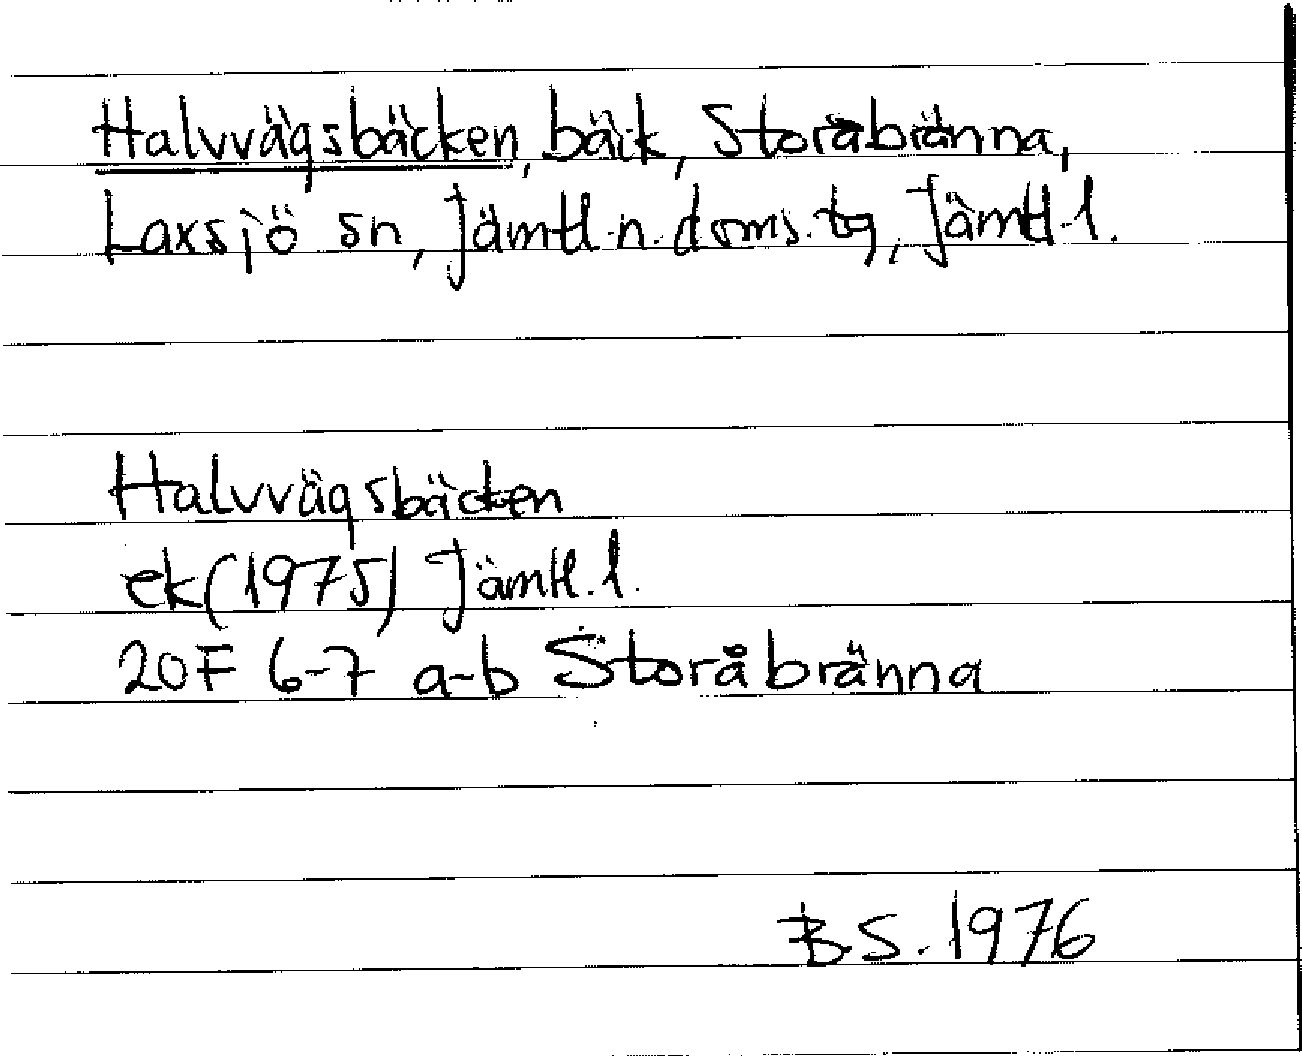 Halvvägsbäcken, bäck, Storåbränna,
Laxsjö sn, Jämtl.n.doms.tg, Jämtl.l.
Halvvägsbäcken
ek(1975) Jämtl.l.
20F 6-7 a-b Storåbränna
B.S. 1976